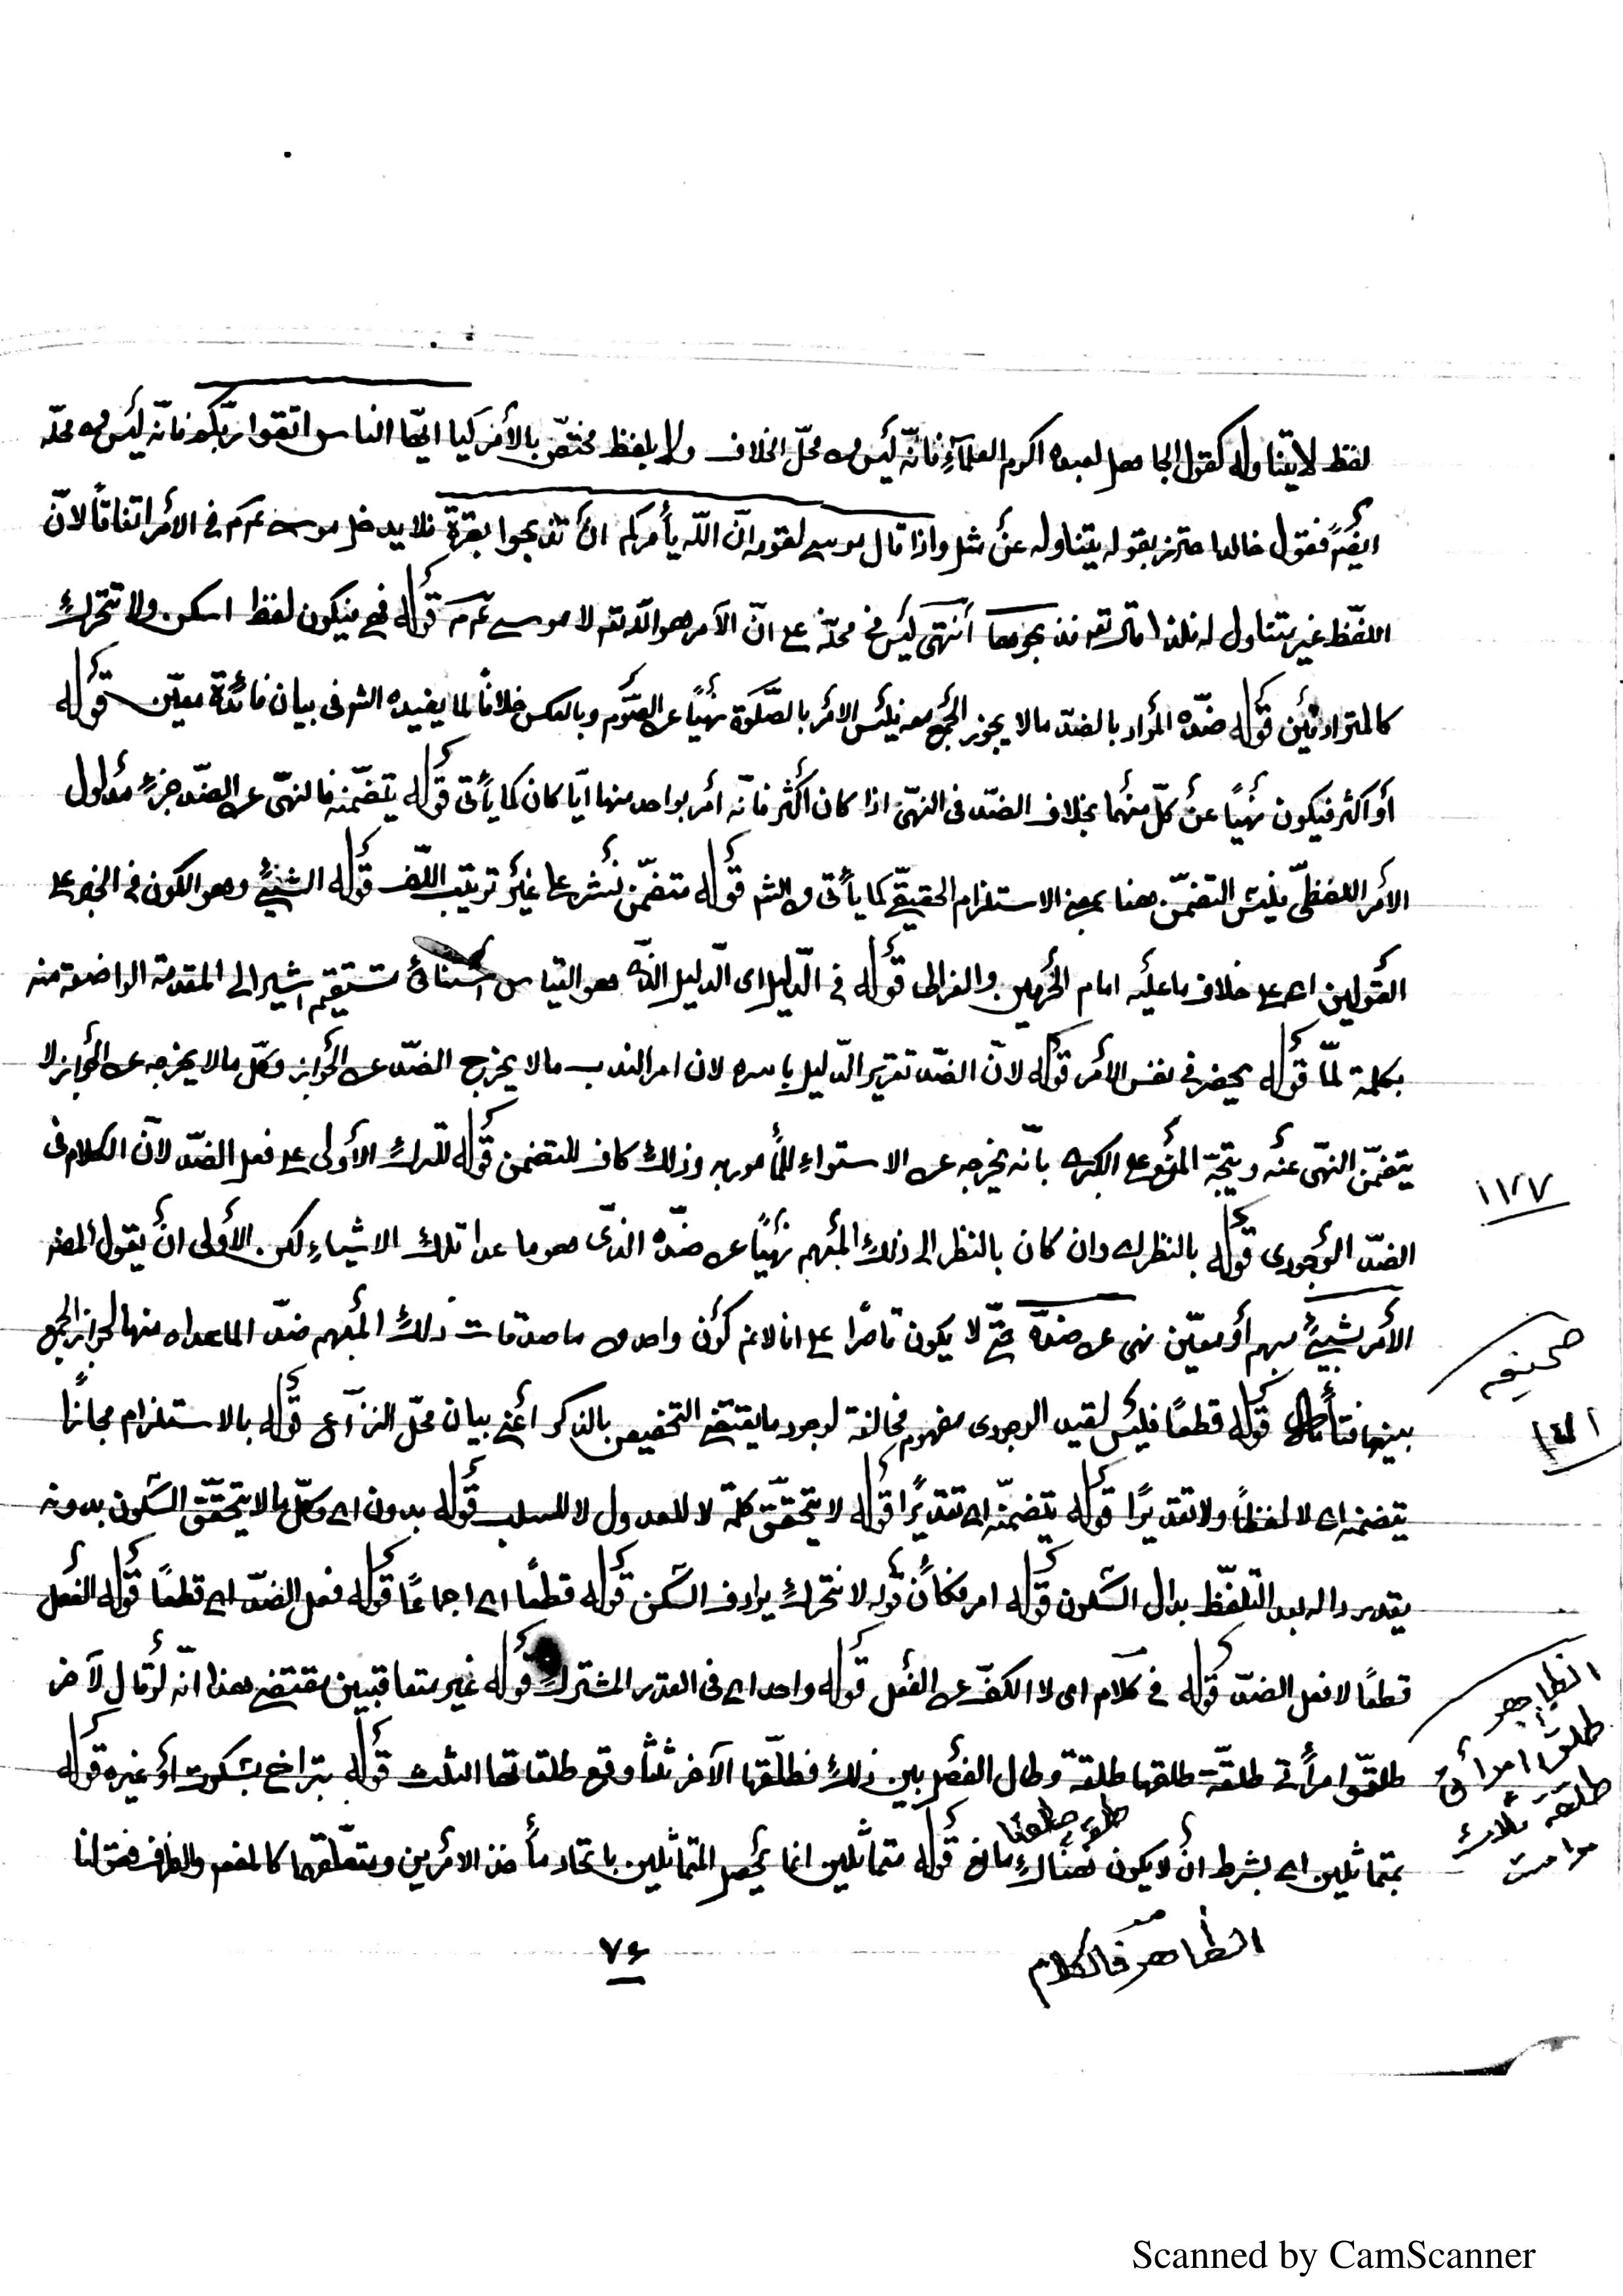 لفظ لا يتناوله كقول الجاهل لعبده اكرم العلمآءِ فانّه ليس من محلّ الخلاف ولا بلفظ مختصّ بالأمر كيا ايّها الناس اتقوا ربّكم فانّه ليس من محلّه
ايضًا فقول خالد احترز بقوله يتناوله عن مثل واذا قال موسى لقومه انّ اللّه يأمركم انْ تذبحوا بقرة فلا يدخل موسى عم م في الأمر اتفاقاً لانّ
اللفظ غير متناول له فلذا قال تعه فذبحوها أنتهى ليس في محلّه على انّ الآمر هو اللّه تعه لا موسى عم م قوله فح فيكون لفظ اسكن ولا تتحرك
كالمترادفين قوله ضدّه المراد بالضدّ ما لا يجوز الجمع معه فليس الامر بالصّلوة نهيًا عن الصّوم وبالعكس خلافاً لما يفيده الشم في بيان فائدة معيّن قوله
أو اكثر فيكون نهيًا عن كلّ منهما بخلاف الضدّ في النهي اذا كان أكثر فانّه أمر بواحد منها ايّا كان كما يأتى قوله يتضمّنه فالنهي عن الضدّ جزء مدلول
الأمر اللفظىّ فليس التضمّن هنا بمعنى الاستلزام الحقيقي كما يأتى في الشم قوله متضمّن نشر على غير ترتيب اللّف قوله الشيئ وهو الكون في الخبر على
القولين اى على خلاف ما عليه امام الحرمين والغزالى قوله في الدّليل اى الدّليل الذى هو القياس استثنائى مستقيم اشير الى المقدمة الواضعة منه
بكلمة لمّا قوله يحضر في نفس الأمر قوله لانّ الضدّ تقرير الدّليل باسره لان امر الندب مما لا يخرج الضدّ عن الجواز وكلّ ما لا يخرجه عن الجواز لا
يتضمّن النهى عنه ويتجّه المنع على الكبرى بانّه يخرجه عن الاستواء للمأمور به وذلك كاف للتضمن قوله للترك الأولى على فعل الضدّ لانّ الكلام في
الضدّ الوجودى قوله بالنظر له وان كان بالنظر الى ذلك المبهم نهيًا عن ضدّه الذى هو ما عدا تلك الاشياءِ لكن الأولى انْ يقول المص
الأمر بشيئ مبهم أو معيّن نهى عن ضدّه حتّى لا يكون قاصرًا على انا لا نم كون واحد من ما صدقات ذلك المبهم ضدّ الما عداه منها لجواز الجمع
بينها فتأمل قوله قطعًا فليس لقيد الوجودى مفهوم مخالفة لوجود ما يقتضي التخصيص بالذكر أعني بيان محلّ النزآع قوله بالاستلزام مجازًا
يتضمنه اى لا لفظاً ولا تقديرًا قوله يتضمّنه اى تقديرًا قوله لا يتحقّق كلمة لا للعدول لا للسلب قوله بدون اى وكلّ ما لا يتحقّق السّكون بدونه
يقدر داله بعد التلفّظ بدال السّكون قوله امر فكأنّ قوله لا تتحرّك يرادف السكن قوله قطعًا اى اجماعًا قوله فعل الضدّ اى قطعًا قوله الفعل
قطعًا لا فعل الضدّ قوله في كلام اى لا الكفّ عن الفعل قوله واحد اى في القدر المشترك قوله غير متعاقبين مقتضى هذا انّه لو قال لآخر
طلقّوا مرأتى طلقة طلقها طلقة وطال الفصل بين ذلك فطلّقها الآخر ثلثاً وقع طلقاتها الثلث قوله بتراخ بسكوت أو غيره قوله
بمتماثلين اى بشرط أن لا يكون هناك مانع قوله متماثلين انما يحصل المتماثلين باتحاد مأخذ الامرين ومتعلّقهما كالمفعم والظرف فقولنا
١٧٧
صحيفه
الظاهر
طلقّ امرأتى
طلقة ثلاث
مرامت
الظاهر فالكلام
٧٤
Scanned by CamScanner